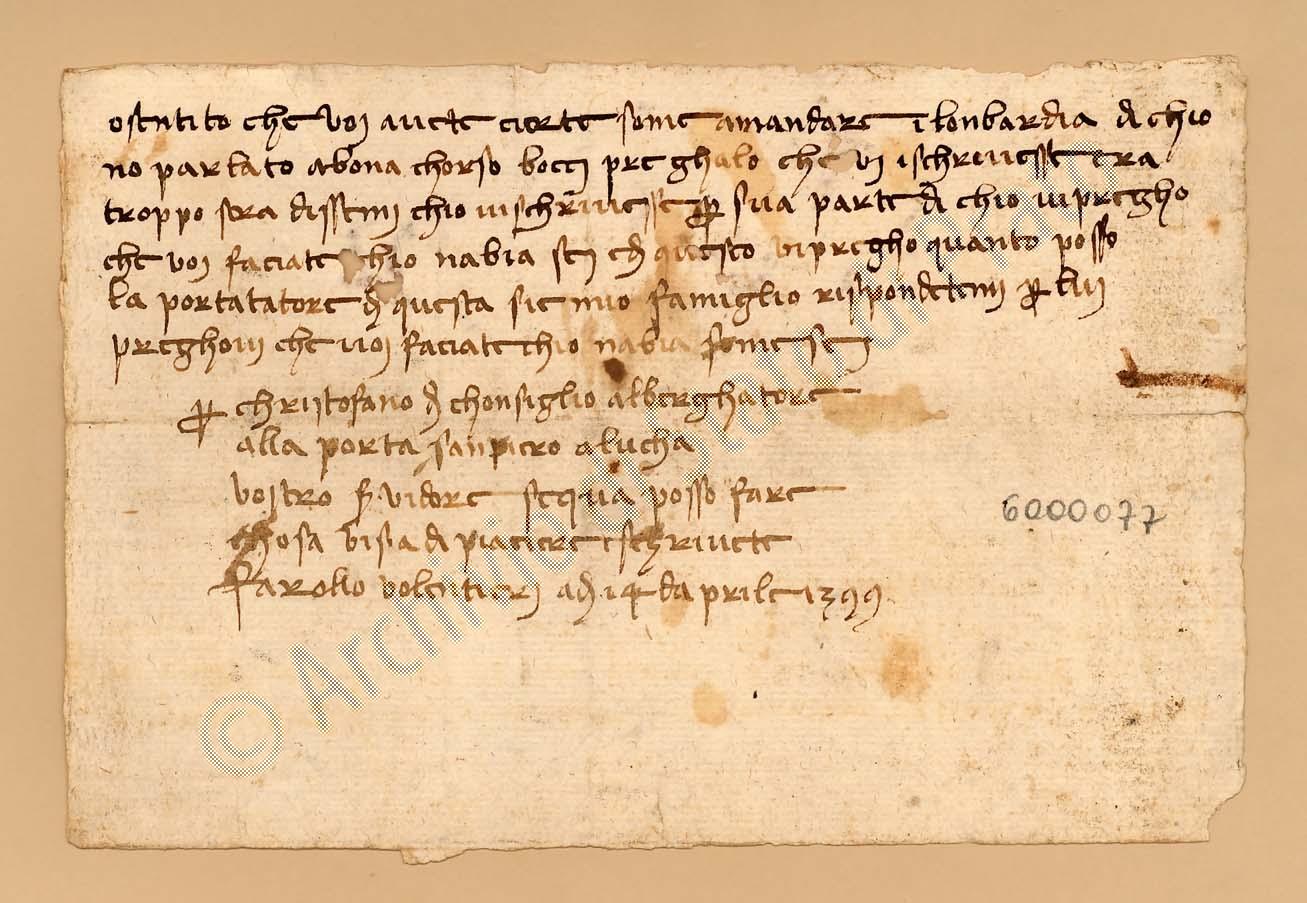 ostntito che voi avete cierte some amandare ī lonbardia di chio
no parlato abona chorso bocci preghalo che vi ischrivesse era
troppo sera dissemi chio vischrivesse ꝑ sua parte di chio vipregho
che voi faciate chio nabia sei e di questo vipregho quanto posso
la portatatore di questa sie mio famiglio rispondetemi ꝑ lui
preghovi che voi faciate chio nabia some sei
ꝑ christofano di chonsiglio alberghatore
alla porta sanpiero a lucha
vostro s̄vidore sequa posso fare
chosa visia di piaciere eschrivete
farollo volentieri adi 14 daprile 1399
6000077
© Archivio di Stato